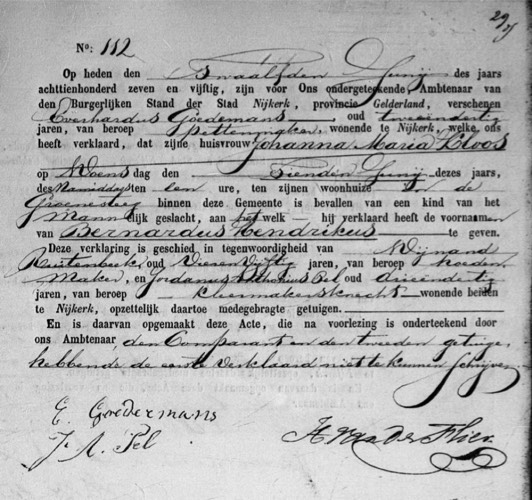 29
Nº: 112
Op heden den Twaalfden Junij des jaars
achttienhonderd zeven en vijftig, zijn voor Ons ondergeteekende Ambtenaar van
den Burgerlijken Stand der Stad Nijkerk, provincie Gelderland, verschenen
Everhardus Goedemans oud tweeendertig
jaren, van beroep wonende te Nijkerk, welke ons
heeft verklaard, dat zijne huisvrouw Johanna Maria Kloos
op Woens dag den Tienden Junij dezes jaars,
des Namiddags ten een ure, ten zijnen woonhuize in de
binnen deze Gemeente is bevallen van een kind van het
Mann lijk geslacht, aan het welk — hij verklaard heeft de voornamen
van Bernardus Hendrikus te geven.
Deze verklaring is geschied in tegenwoordigheid van Wijnand
Ruitenbeek, oud Vierenvijftig jaren, van beroep hoeden
Maker, en Jordanus Anthonius Pel oud drieendertig
jaren, van beroep kleermakersknecht wonende beiden
te Nijkerk, opzettelijk daartoe medegebragte getuigen.
En is daarvan opgemaakt deze Acte, die na voorlezing is onderteekend door
ons Ambtenaar den Comparant en den tweeden getuige,
hebbende de eerste verklaard niet te kunnen schrijven
E. Goedermans
J. A. Pel
H van der Flier